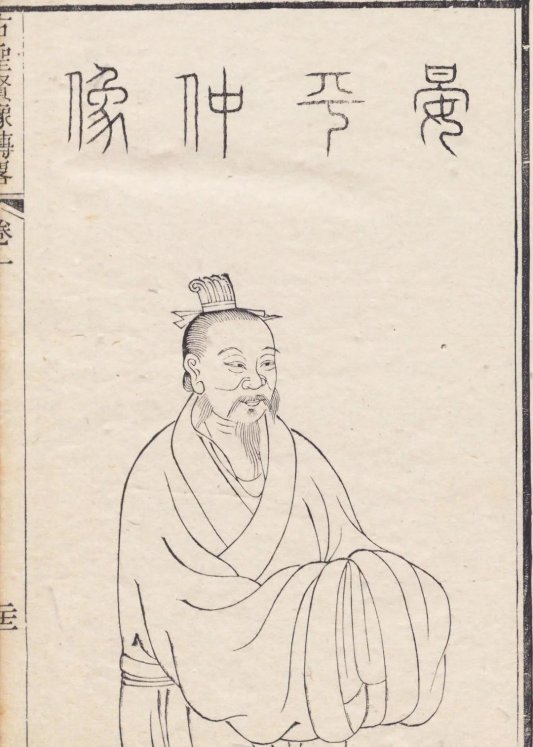 晏平仲像
古聖賢像傳畧
卷一